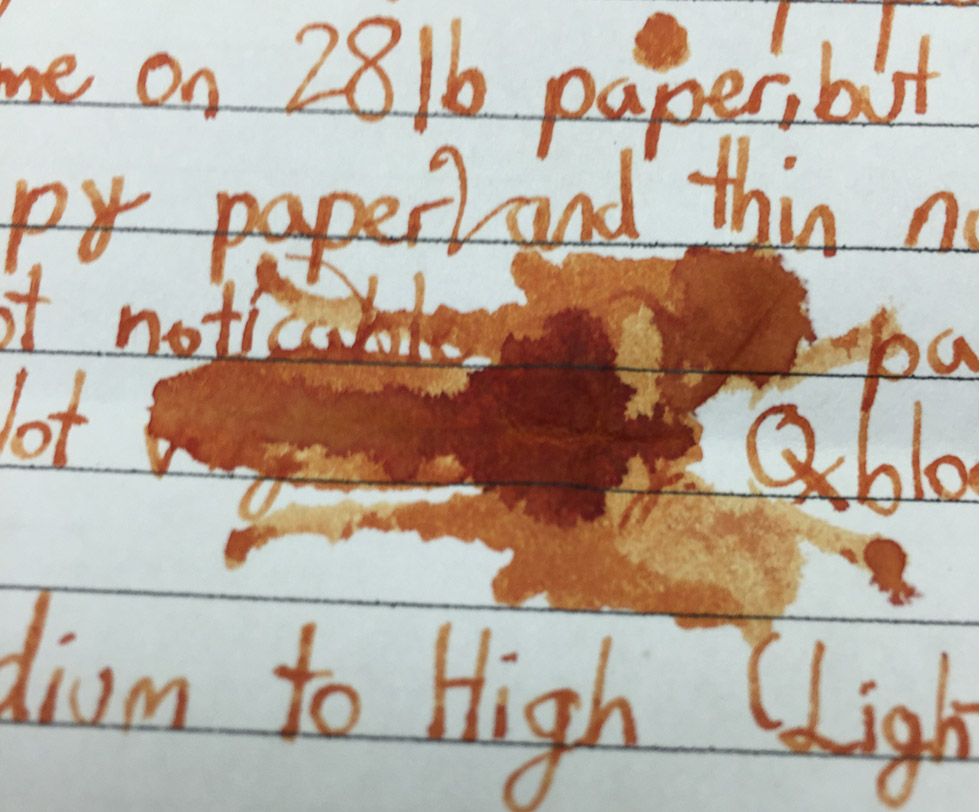 me on 28lb paper, but
py paper) and thin no
ot noticable pa
lot Qblo
dium to High (Ligh